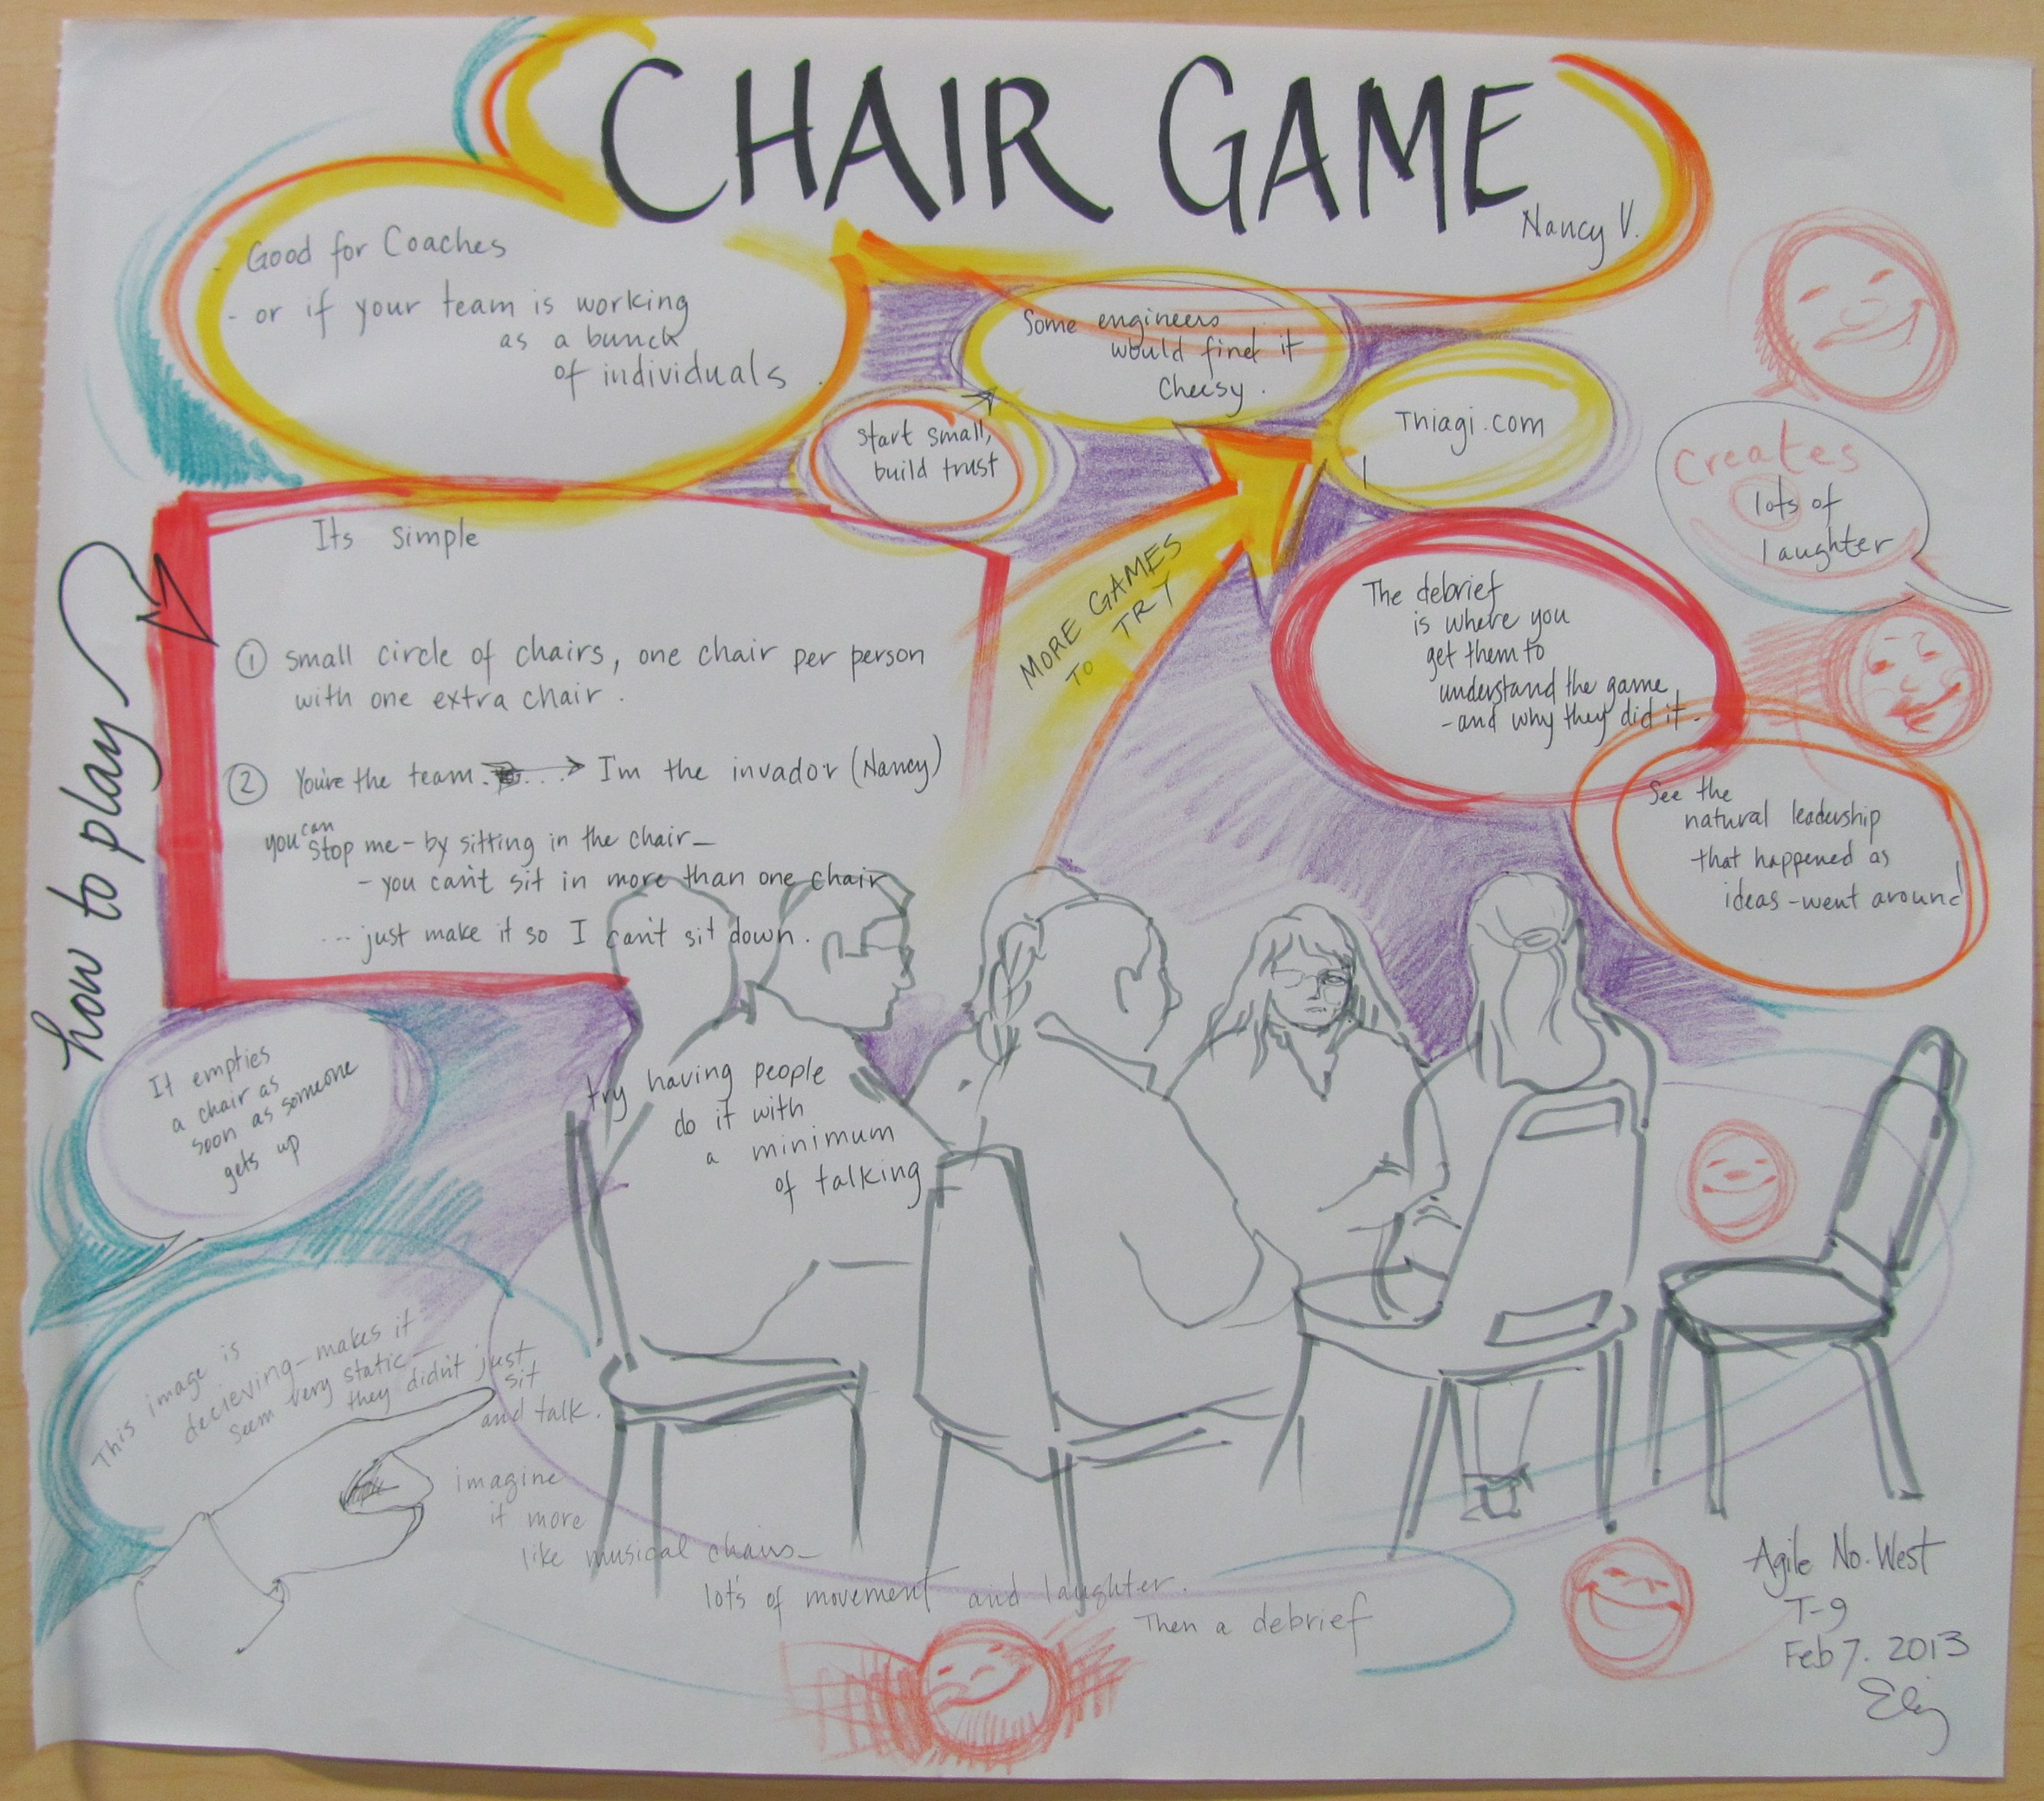 CHAIR GAME
Nancy V.
Good for Coaches
- or if your team is working
as a bunch
of individuals.
Some engineers
would find it
Cheesy.
Start small,
build trust
Thiagi.com
MORE GAMES
TO TRY
Creates
lots of
laughter
how to play
Its simple
① small circle of chairs, one chair per person
with one extra chair.
② You're the team. ...→ I'm the invador (Nancy)
can
you stop me - by sitting in the chair -
- you can't sit in more than one chair
... just make it so I can't sit down.
The debrief
is where you
get them to
understand the game
- and why they did it -
See the
natural leadership
that happened as
ideas - went around
It empties
a chair as
soon as someone
gets up
try having people
do it with
a minimum
of talking
This image is
decieving - makes it
seem very static -
they didn't just
sit
and talk.
imagine
it more
like musical chairs -
lot's of movement and laughter.
Then a debrief
Agile No. West
T-9
Feb 7. 2013